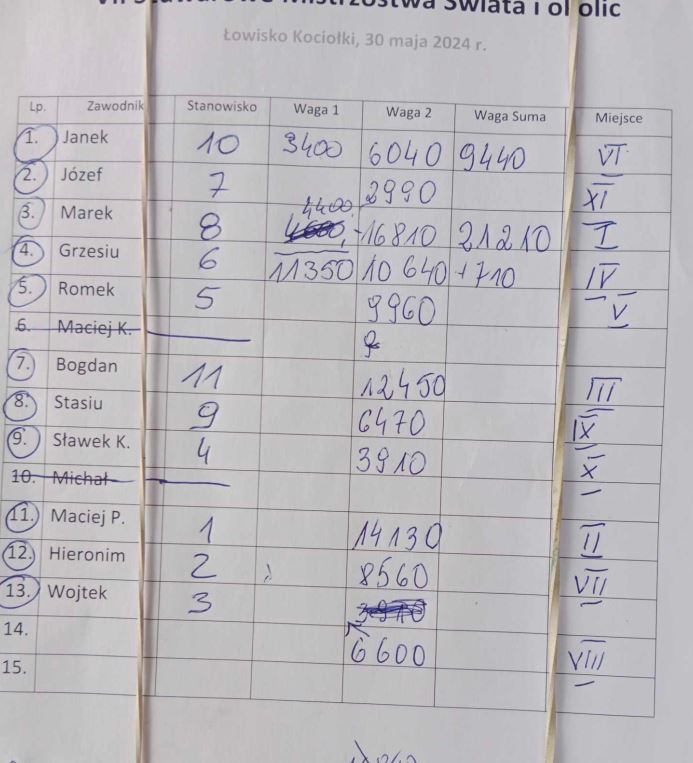 Mistrzostwa Świata i okolic
Łowisko Kociołki, 30 maja 2024 r.
Lp. Zawodnik Stanowisko Waga 1 Waga 2 Waga Suma Miejsce
1. Janek 10 3400 6040 9440 VI
2. Józef 7 2990 XI
4400
3. Marek 8 16810 21210 I
4. Grzesiu 6 11350 10 640 +710 IV
5. Romek 5 9960 V
6. Maciej K.
7. Bogdan 11 12450 III
8. Stasiu 9 6470 IX
9. Sławek K. 4 3910 X
10. Michał
11. Maciej P. 1 14130 II
12. Hieronim 2 8560 VII
13. Wojtek 3
14. 6600 VIII
15.